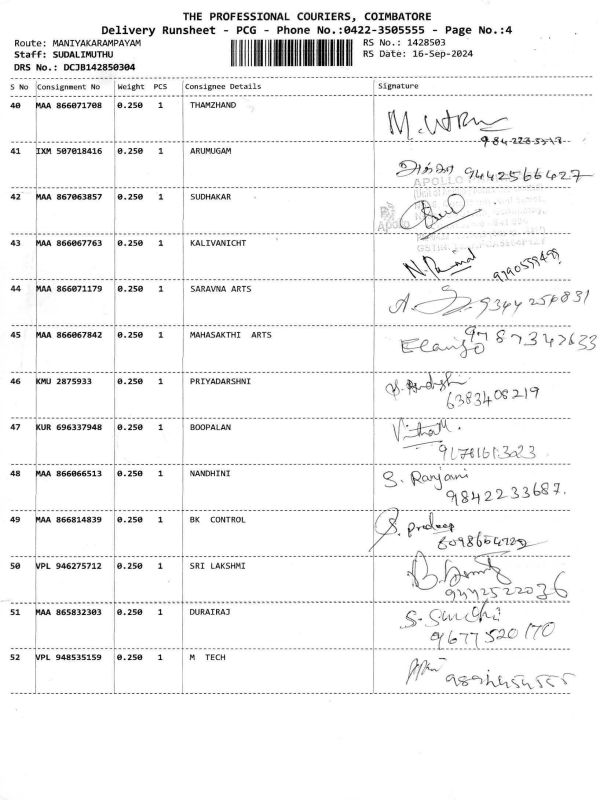 THE PROFESSIONAL COURIERS, COIMBATORE
Delivery Runsheet - PCG - Phone No.:0422-3505555 - Page No.:4
Route: MANIYAKARAMPAYAM RS No.: 1428503
Staff: SUDALIMUTHU RS Date: 16-Sep-2024
DRS No.: DCJB142850304
S No Consignment No Weight PCS Consignee Details Signature
40 MAA 866071708 0.250 1 THAMZHAND
41 IXM 507018416 0.250 1 ARUMUGAM
9442566427
42 MAA 867063857 0.250 1 SUDHAKAR
APOLLO
Apollo
43 MAA 866067763 0.250 1 KALIVANICHT
44 MAA 866071179 0.250 1 SARAVNA ARTS
9344254831
45 MAA 866067842 0.250 1 MAHASAKTHI ARTS
9787347633
46 KMU 2875933 0.250 1 PRIYADARSHNI
6383408219
47 KUR 696337948 0.250 1 BOOPALAN
48 MAA 866066513 0.250 1 NANDHINI
S. Ranjani
9842233687.
49 MAA 866814839 0.250 1 BK CONTROL
S. pradeep
50 VPL 946275712 0.250 1 SRI LAKSHMI
9442522036
51 MAA 865832303 0.250 1 DURAIRAJ
9677520170
52 VPL 948535159 0.250 1 M TECH